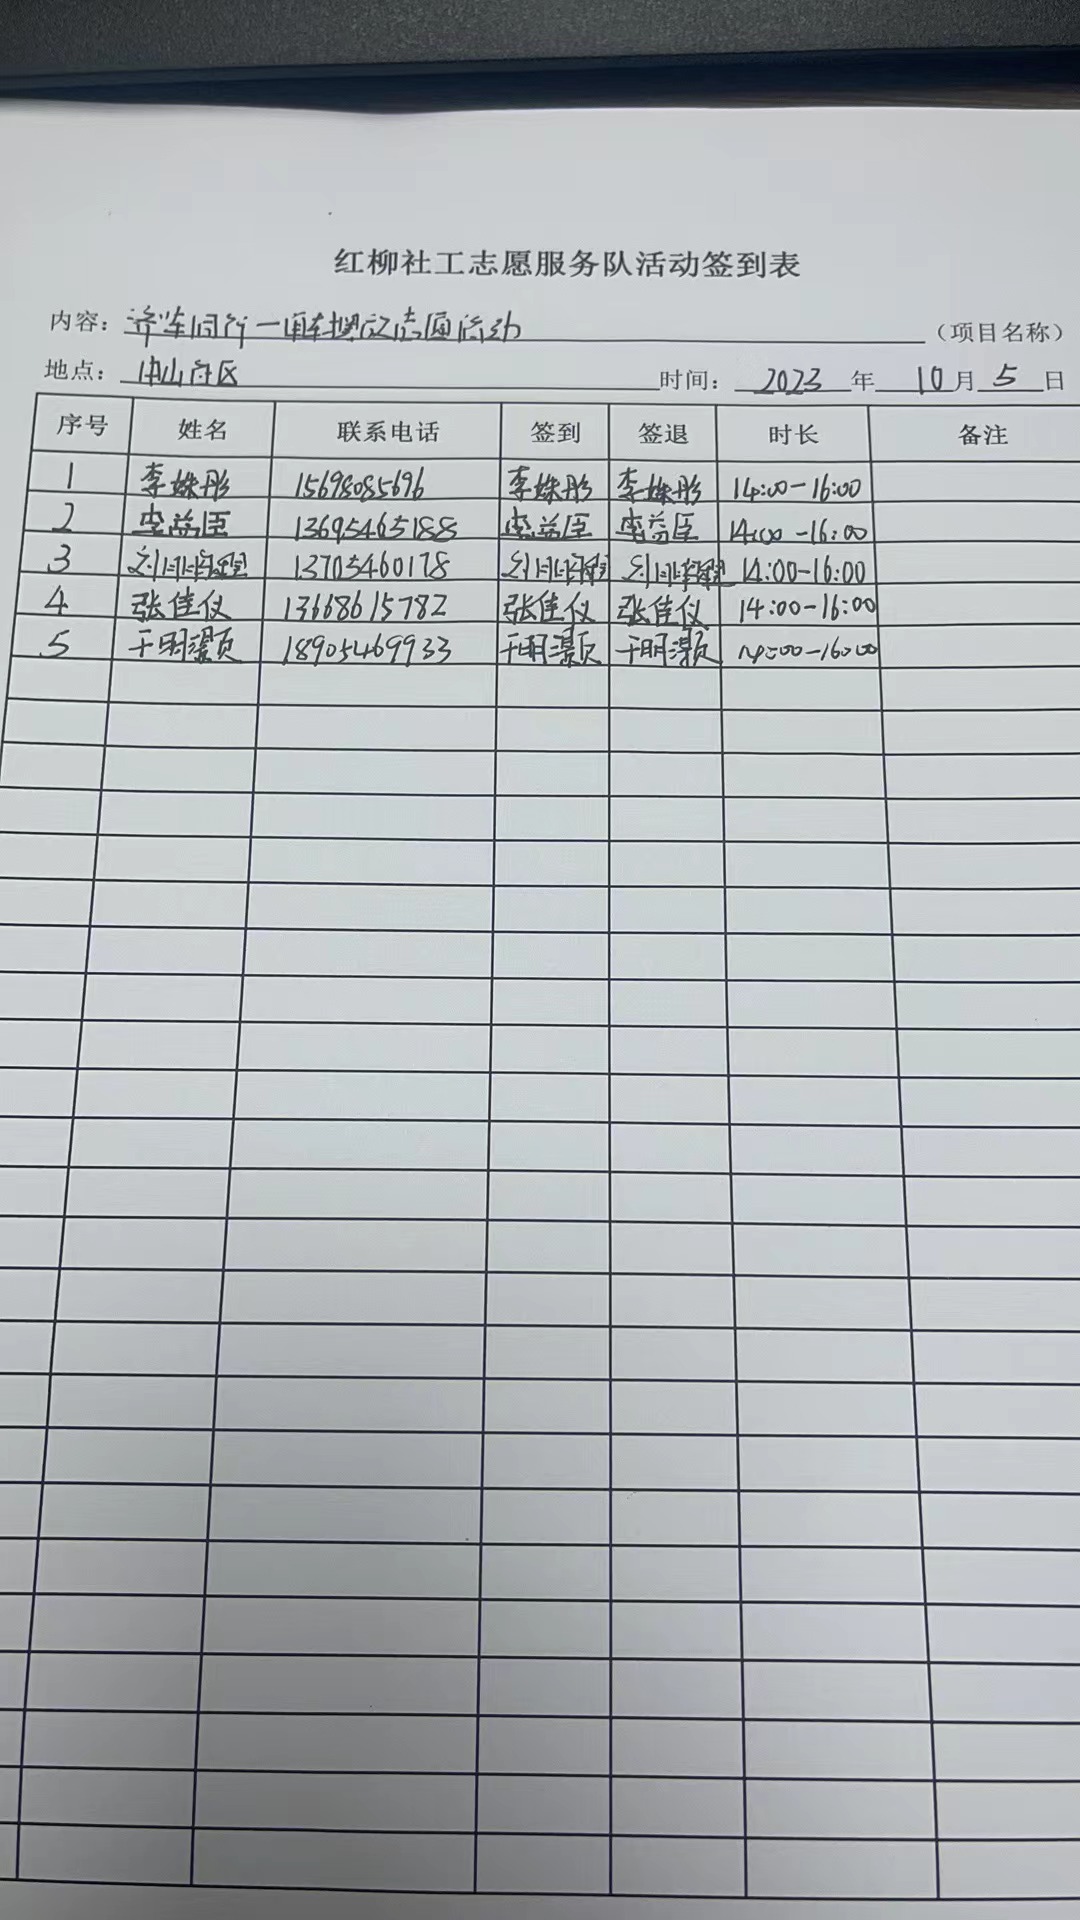 红柳社工志愿服务队活动签到表
内容： 志愿活动 （项目名称）
地点： 中山社区 时间： 2023 年 10 月 5 日
序号 姓名 联系电话 签到 签退 时长 备注
1 李姝彤 15698085696 李姝彤 李姝彤 14:00-16:00
2 李益臣 13695465188 李益臣 李益臣 14:00-16:00
3 13705460178 14:00-16:00
4 张佳仪 13668615782 张佳仪 张佳仪 14:00-16:00
5 于明灏 18905469933 于明灏 于明灏 14:00-16:00